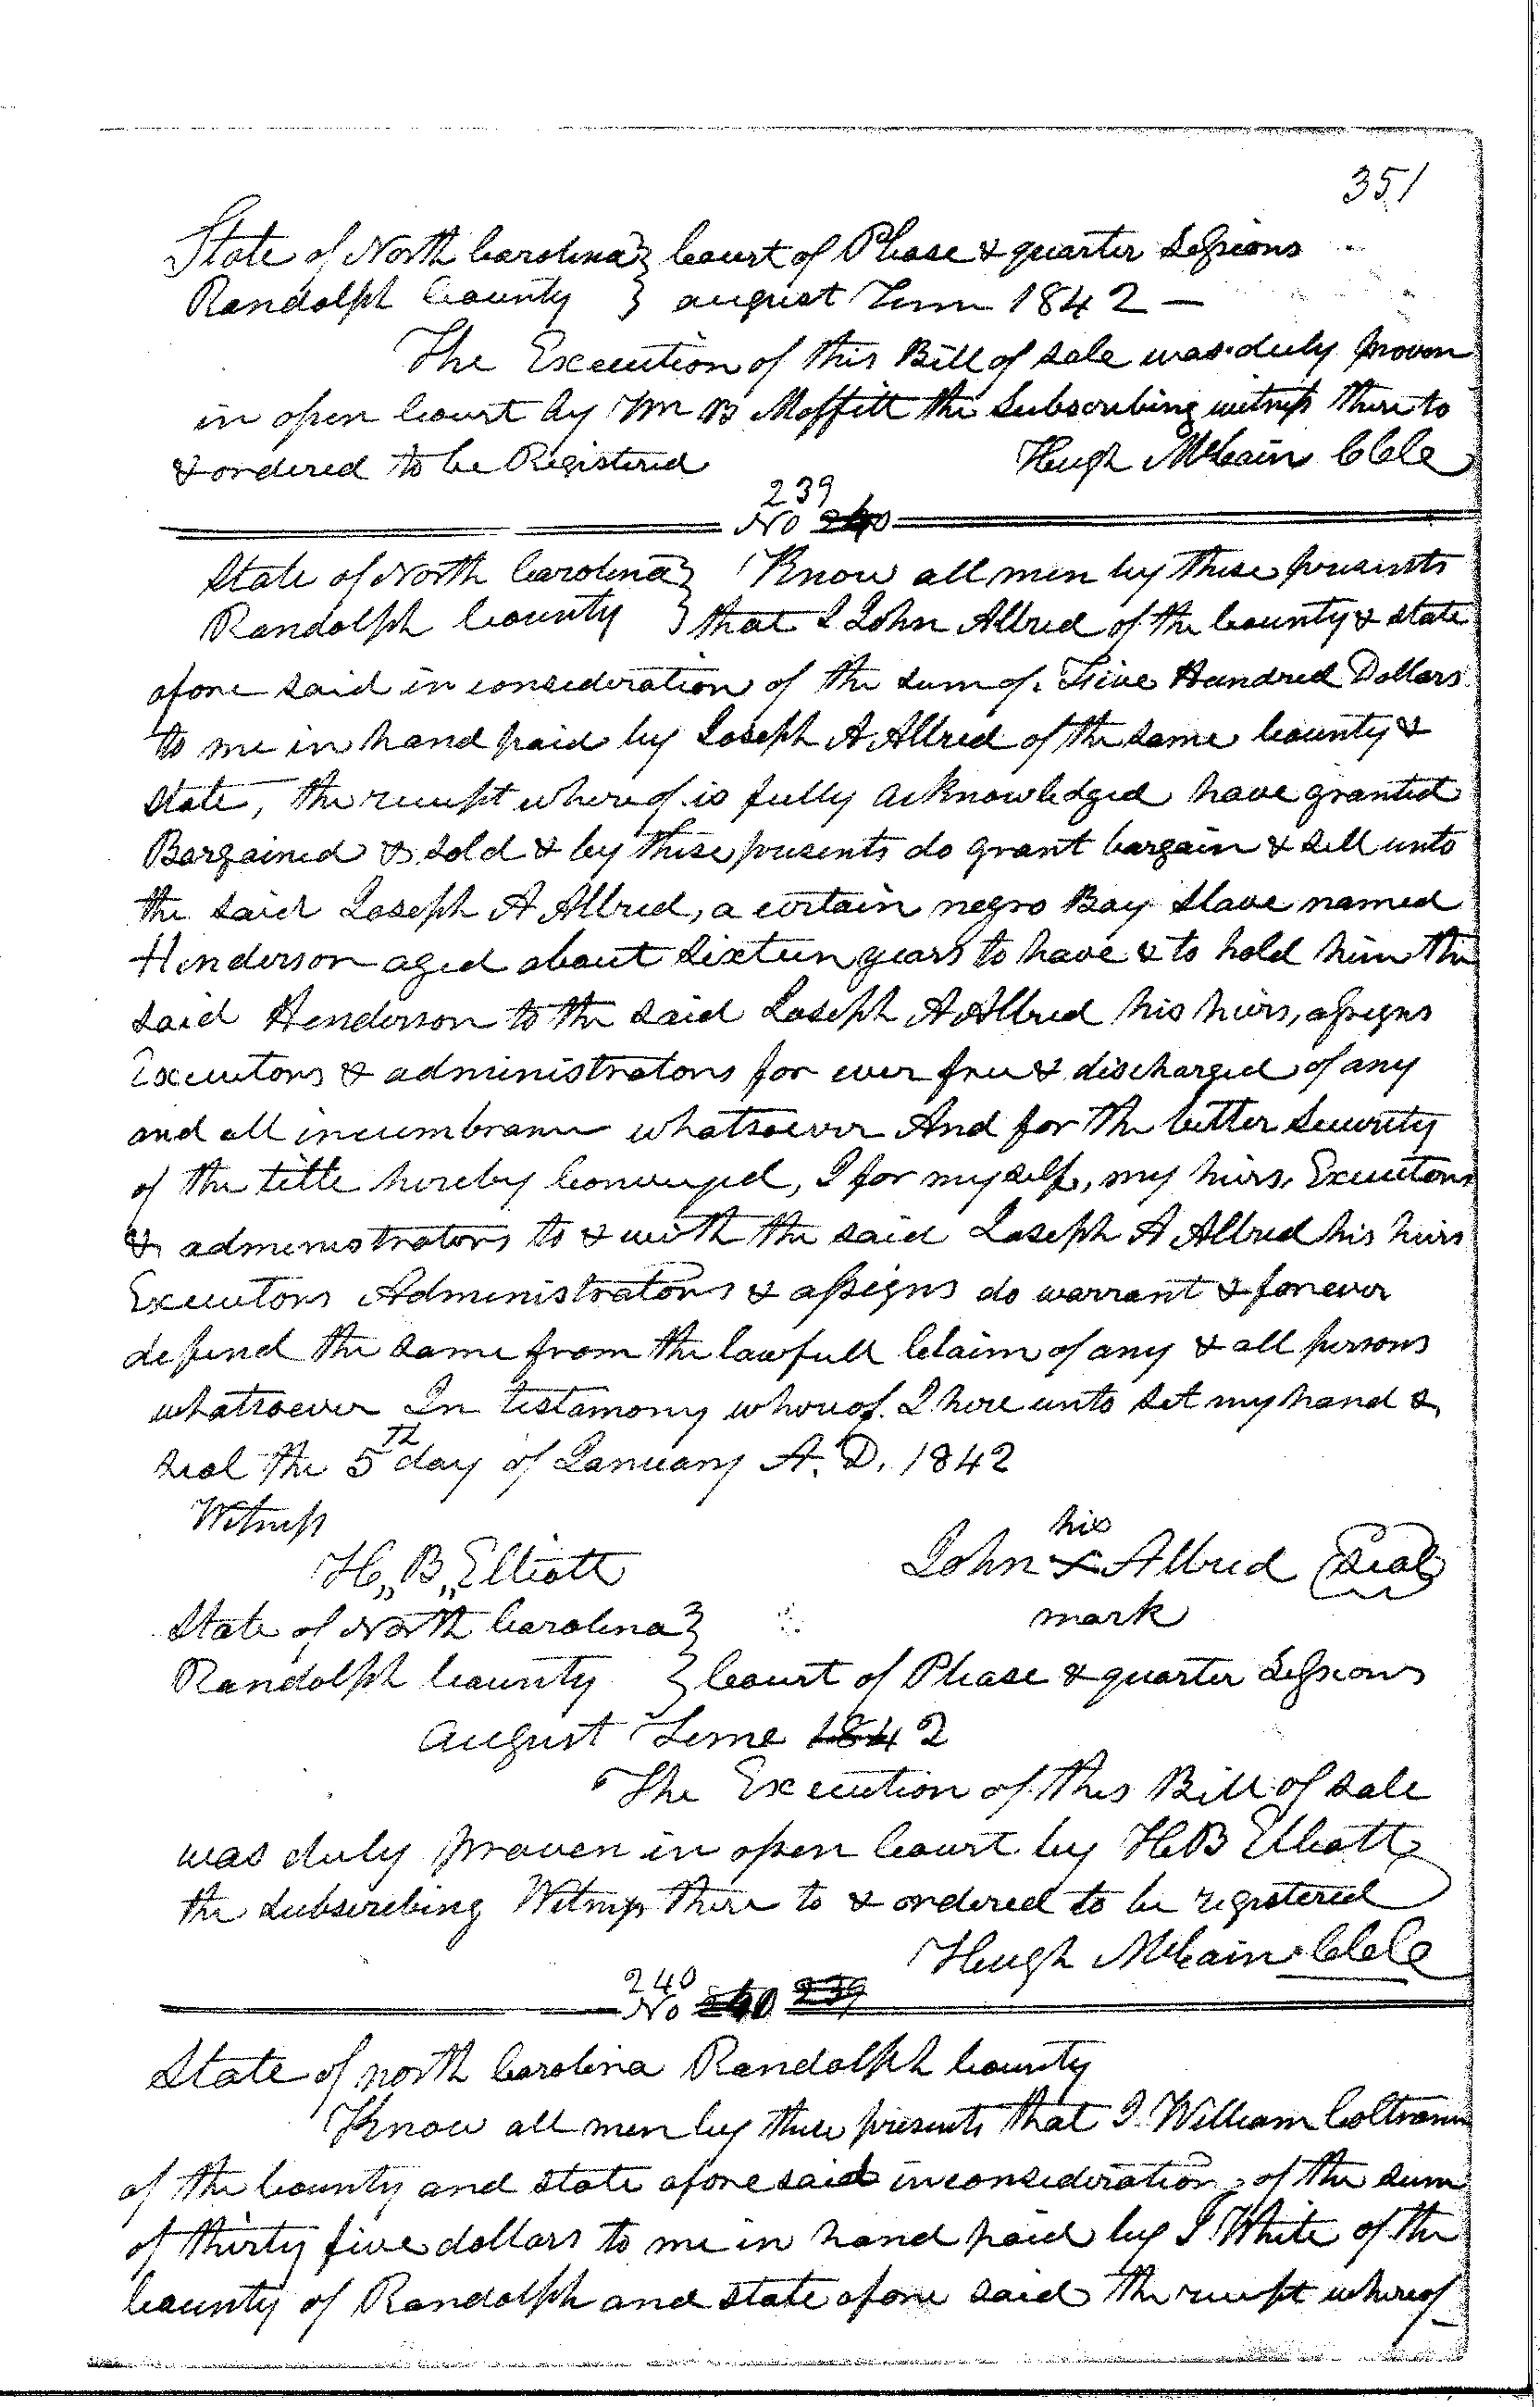 351
State of North Carolina } Court of Please & quarter Sessions
Randolph County } august Term 1842 —
The Execution of this Bill of sale was duly proven
in open Court by Wm B Moffitt the Subscribing witness there to
& ordered to be Registered Hugh McCain CCLC
239
No 240
State of North Carolina } Know all men by these presents
Randolph County } that I John Allred of the County & state
afore said in consideration of the sum of Five Hundred Dollars
to me in hand paid by Joseph A Allred of the same County &
state, the receipt where of is fully acknowledged have granted
Bargained & sold & by these presents do grant bargain & sell unto
the said Joseph A Allred, a certain negro Boy slave named
Henderson aged about sixteen years to have & to hold him the
said Henderson to the said Joseph A Allred his heirs, assigns
Executors & administrators for ever free & discharged of any
and all incumbrance whatsoever And for the better security
of the title hereby Conveyed, I for my self, my heirs, Executors
& administrators to & with the said Joseph A Allred his heirs
Executors Administrators & assigns do warrant & forever
defend the same from the lawfull Claim of any & all persons
whatsoever In testamony whereof I here unto set my hand &
seal the 5th day of January A. D. 1842
Witness
his
H,, B,, Elliott John x Allred (Seal)
mark
State of North Carolina }
Randolph County } Court of Please & quarter Sessions
August Terme 1842
The Execution of this Bill of sale
was duly proven in open Court by H B Elliott
the subscribing Witness there to & ordered to be registered
Hugh McCain CCLC
240
No 240 239
State of north Carolina Randolph County
Know all men by these presents that I William Coltrane
of the County and state afore said in consideration of the sum
of thirty five dollars to me in hand paid by I White of the
County of Randolph and state afore said the receipt whereof